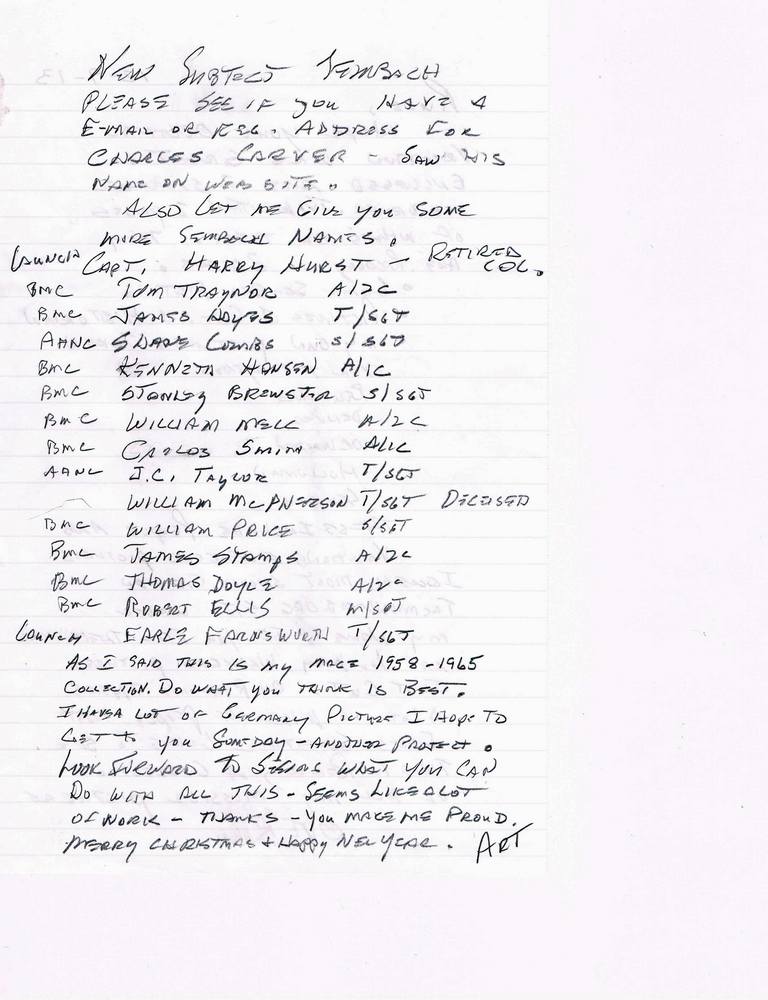 NEW SUBJECT SEMBACH
PLEASE SEE IF YOU HAVE A
E-MAIL OR REG. ADDRESS FOR
CHARLES CARVER - SAW HIS
NAME ON WEB SITE.
ALSO LET ME GIVE YOU SOME
MORE SEMBACH NAMES.
LAUNCH CAPT. HARRY HURST - RETIRED COL.
BMC TOM TRAYNOR A/2C
BMC JAMES T/SGT
AANC COMBS S/SGT
BMC KENNETH HANSEN A/1C
BMC STANLEY BREWSTER S/SGT
BMC WILLIAM MELL A/2C
BMC CARLOS SMITH A/1C
AANC J.C. TAYLOR T/SGT
WILLIAM McPHERSON T/SGT DECESED
BMC WILLIAM PRICE S/SGT
BMC JAMES STAMPS A/2C
BMC THOMAS DOYLE A/2C
BMC ROBERT ELLIS M/SGT
LAUNCH EARLE FARNSWORTH T/SGT
AS I SAID THIS IS MY MACE 1958-1965
COLLECTION. DO WHAT YOU THINK IS BEST.
I HAVE A LOT OF GERMANY PICTURE I HOPE TO
GET TO YOU SOMEDAY - ANOTHER PROJECT.
LOOK FORWARD TO SEEING WHAT YOU CAN
DO WITH ALL THIS - SEEMS LIKE A LOT
OF WORK - THANKS - YOU MAKE ME PROUD.
MERRY CHRISTMAS + HAPPY NEW YEAR. ART